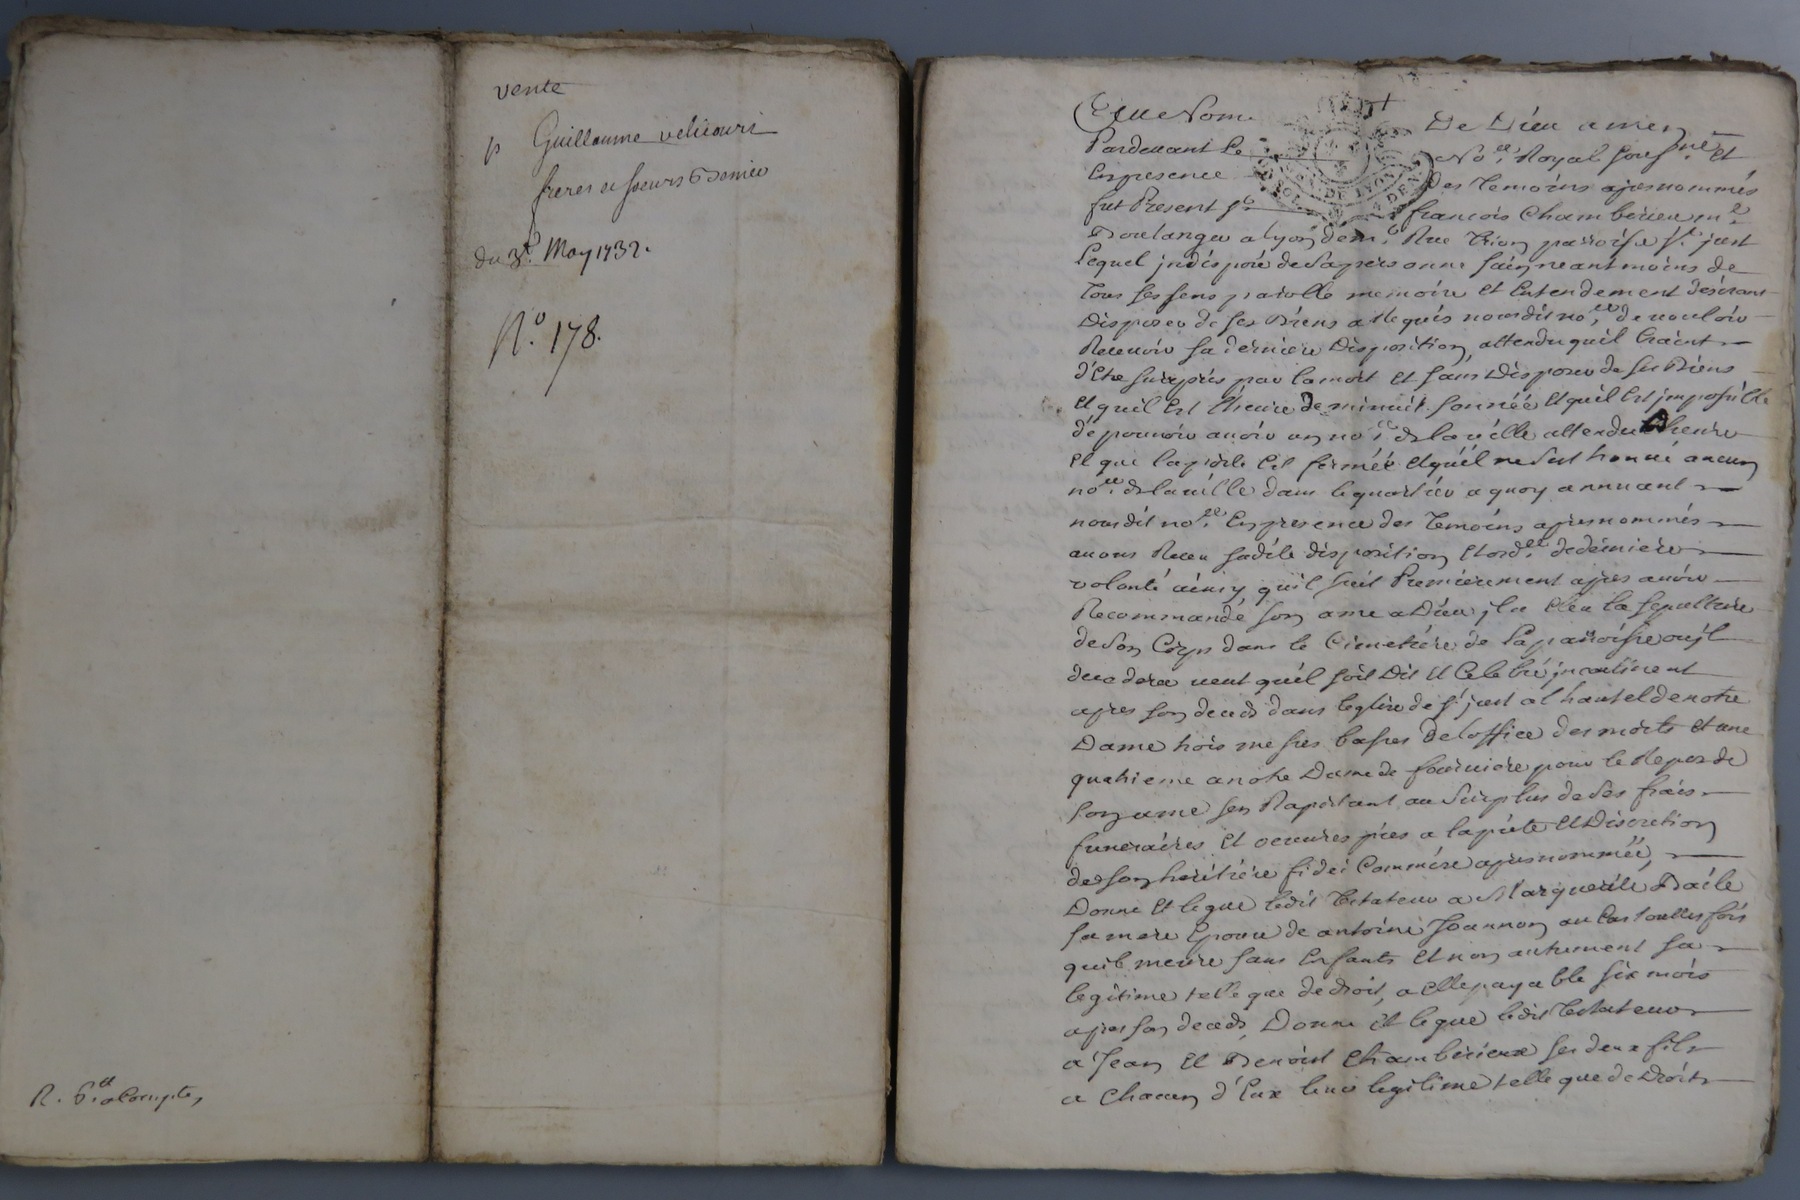 vente
p Guillaume velicouri
freres et soeurs Demieu
du 3e. May 1732.
N.o 178.
R. 6.tt acompte,
Au Nom De Dieu amen
Pardevant le No.re Royal sousig.né et
En presence Des temoins apres nommés
fut Present s.r francois Chamberieu m.e
Boulanger a lyon dem.t Rue Trion paroisse s.t just
lequel jndisposé de sa personne sain neantmoins de
tous ses sens parolle memoire Et Entendement desirant
Disposer de ses Biens a Requis nousdit no.re de vouloir
Recevoir sa derniere Disposition, attendu quil Craint
d'Etre surpris par la mort Et sans Disposer de ses Biens
Et quil Est l'heure De minuit sonnée Et quil Est jmposible
de pouvoir avoir un no.re de la ville attendu lheure
Et que la porte Est fermée Et quil ne s'est trouvé aucun
no.re de la ville dans le quartier a quoy annuant
nousdit no.re En presence des temoins apres nommés
avons Receu sadite disposition Et ord.ce de derniere
volonté ainsy quil suit Premierement apres avoir
Recommandé son ame a Dieu jl a Eleu la sepulture
de son Corps dans le Cimetiére de la paroisse ou jl
decedera veut quil soit Dit Et Celebré jncontinent
apres son deceds dans leglise de s.t just al hautel de notre
Dame trois messes basses De loffice des morts Et une
quatrieme a notre Dame de fourviere pour le Repos de
son ame sen Raportant au surplus de ses frais
funeraires Et oeuvres pies a la pieté Et Discretion
de son heritiére fidei Commise apres nommée,
Donne Et legue ledit Testateur a Marguerite Baile
sa mere Epouse de antoine Joannon au Cas touttes fois
quil meure sans Enfants Et non autrement sa
legitime telle que de droit, a Elle payable six mois
apres son deceds, Donne Et legue ledit Testateur
a Jean Et Benoist Chamberieux ses deux fils
a Chacun d'Eux leur legitime telle que de Droit